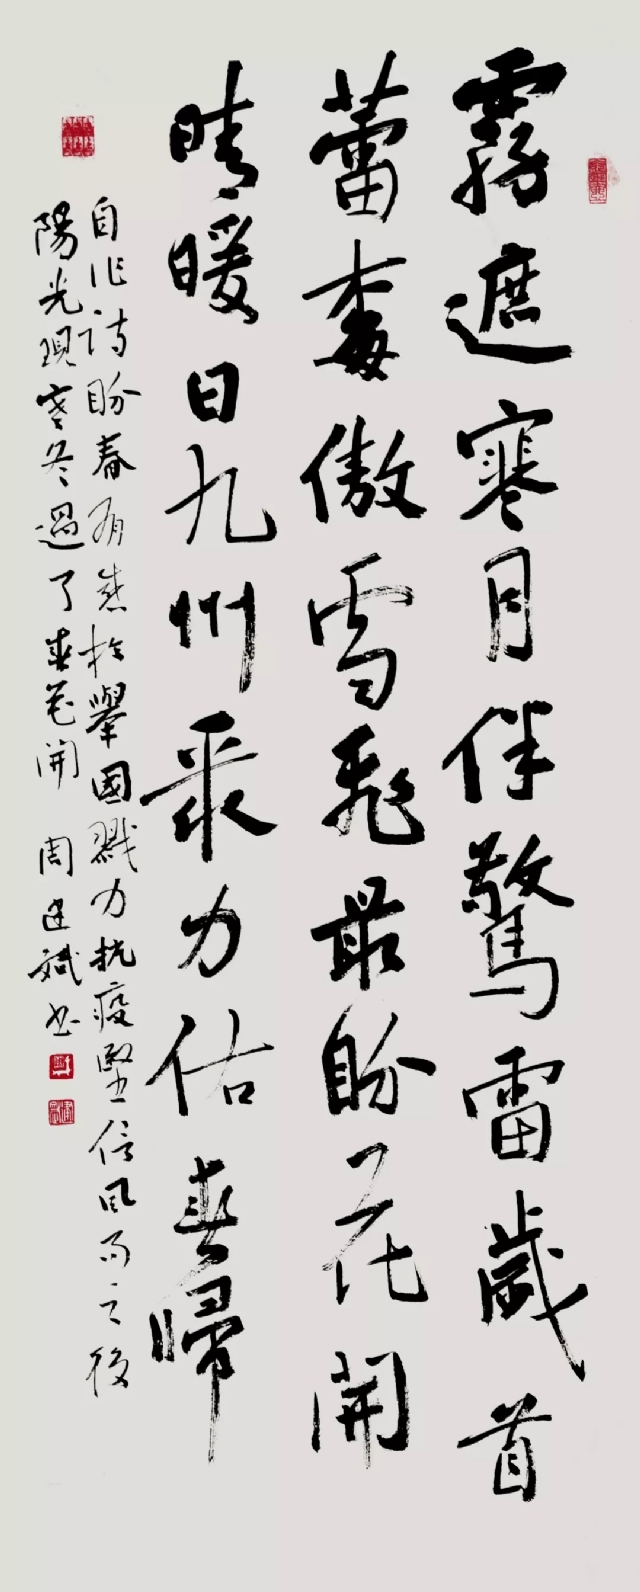 霧遮寒月伴驚雷歲首
蕾梅傲雪飛最盼花開
晴暖日九州聚力佑春歸
自作詩盼春有感於舉國戮力抗疫堅信風雨之後
陽光現寒冬過了春花開 周建斌書